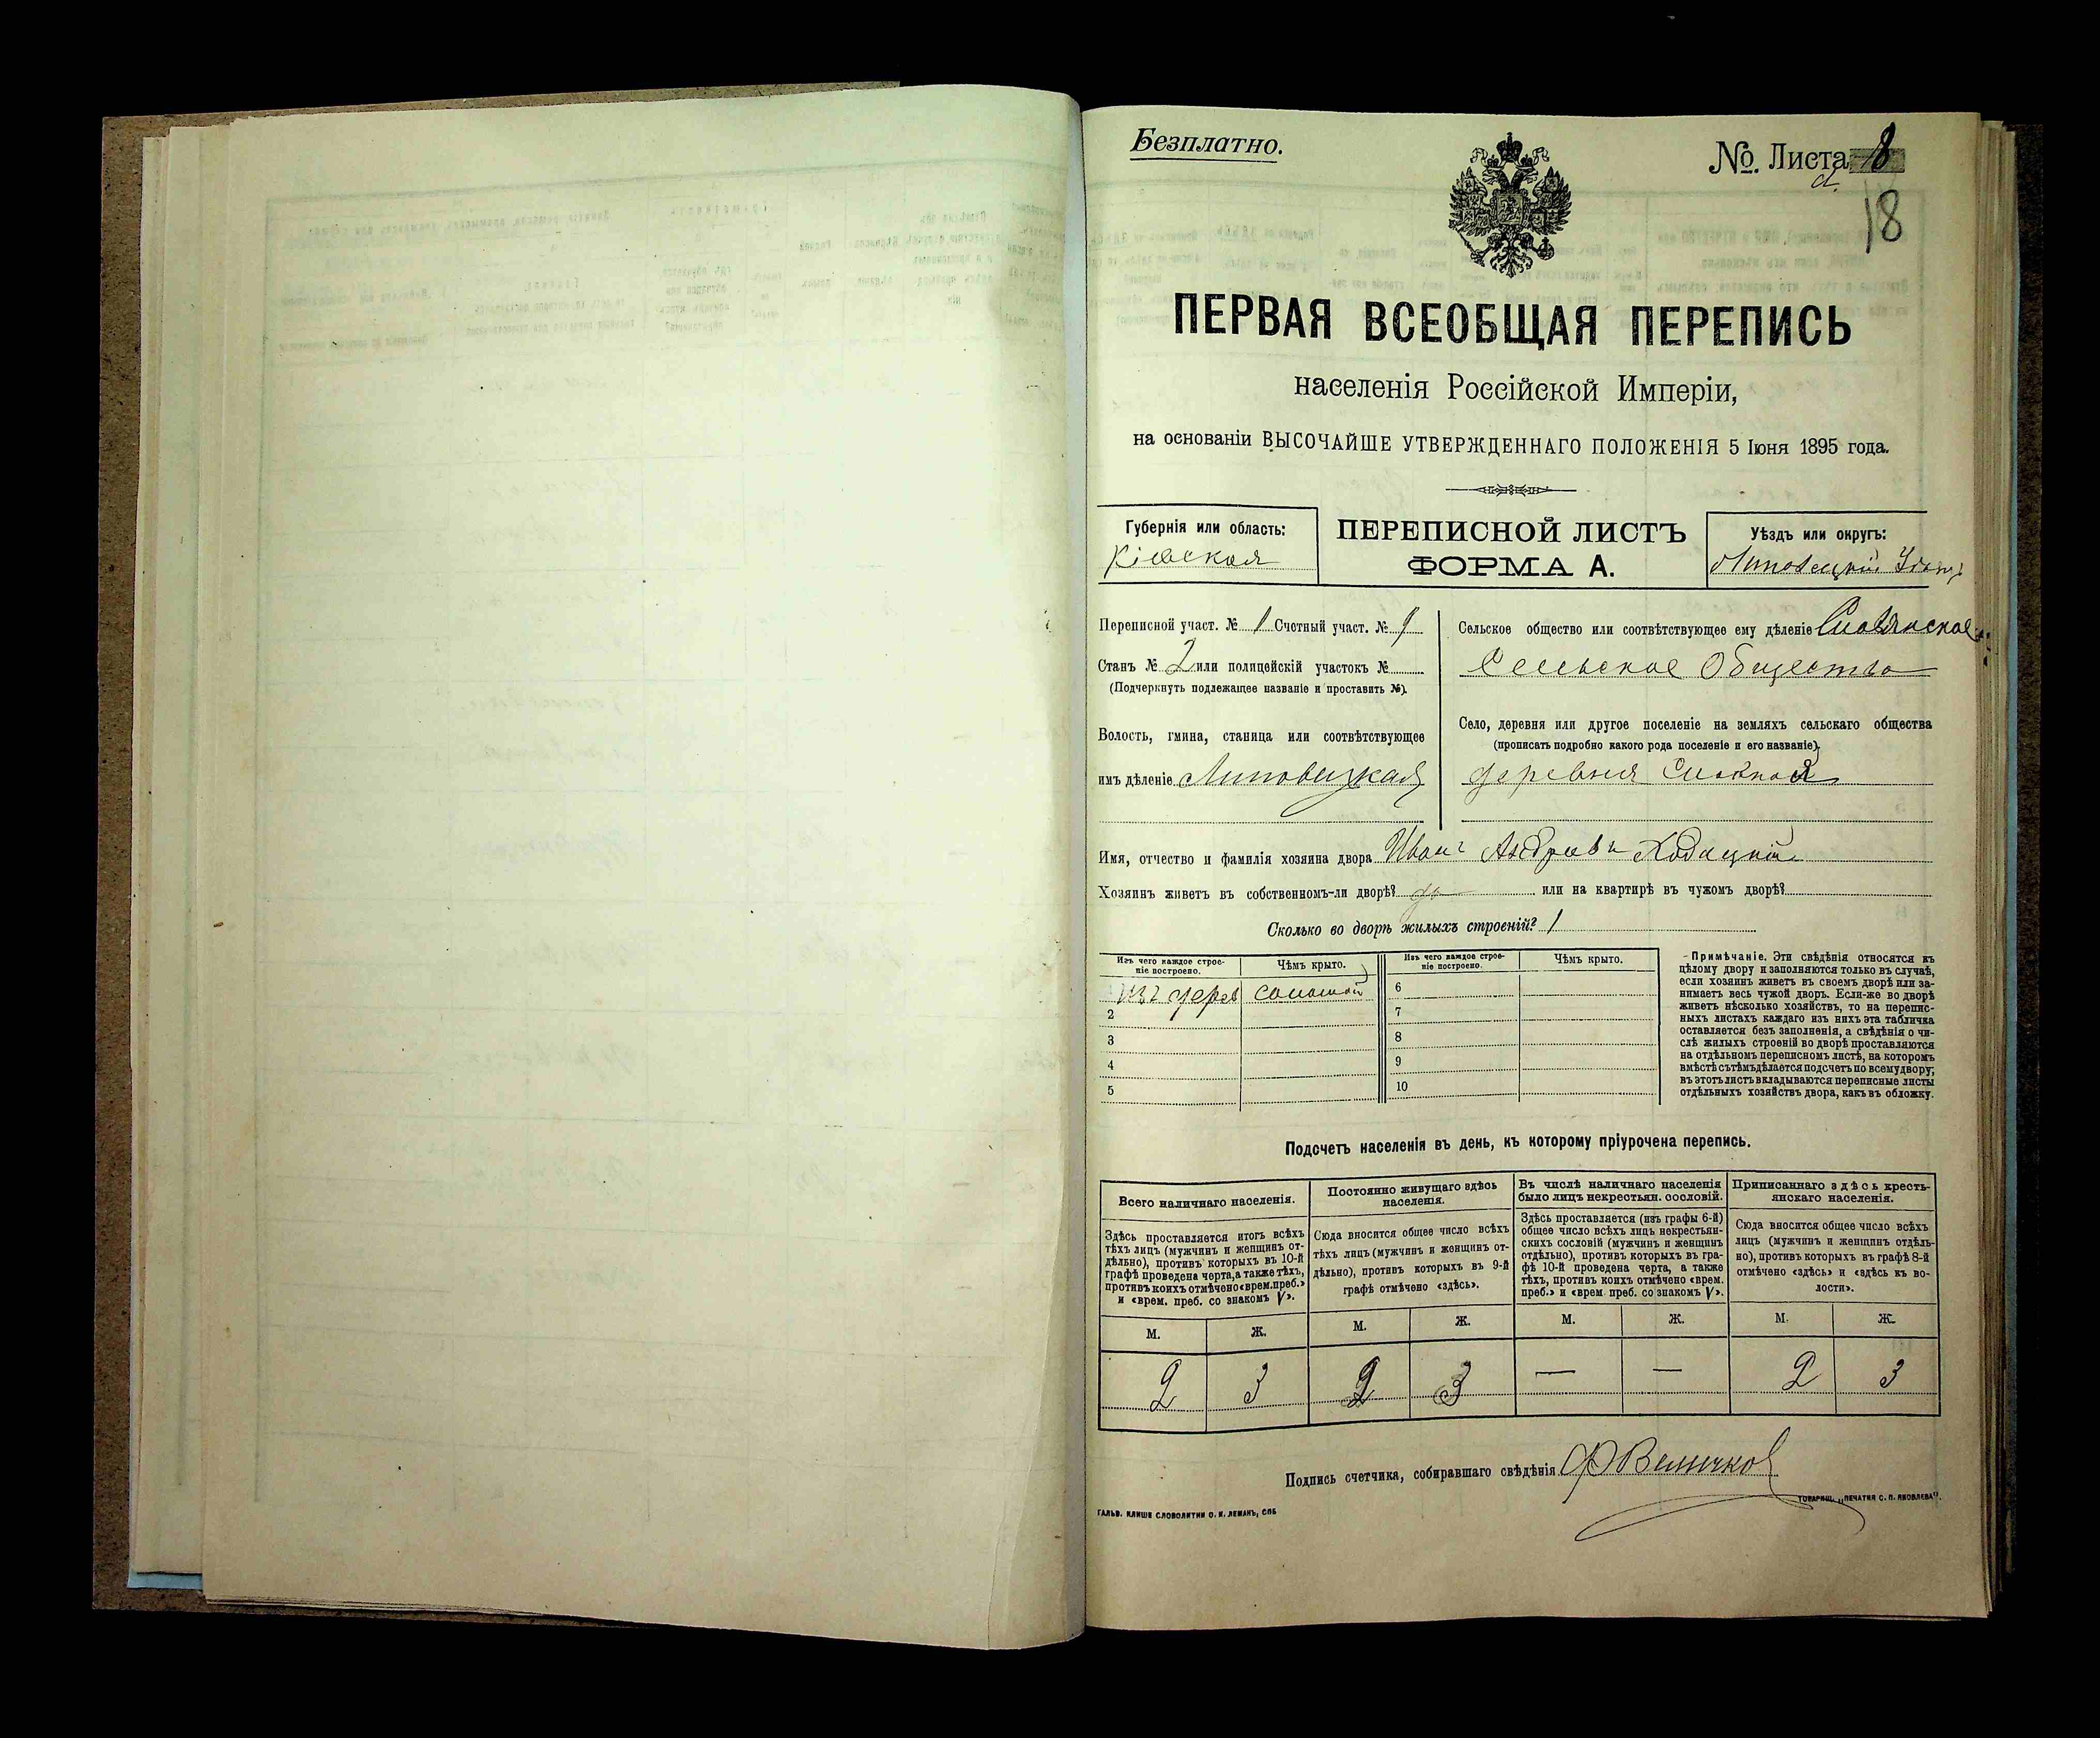 Безплатно.
№ Листа 8
18
ПЕРВАЯ ВСЕОБЩАЯ ПЕРЕПИСЬ
населенія Россійской Имперіи,
на основаніи ВЫСОЧАЙШЕ УТВЕРЖДЕННАГО ПОЛОЖЕНІЯ 5 Іюня 1895 года.
Губернія или область:
Кіевская
ПЕРЕПИСНОЙ ЛИСТЪ
ФОРМА А.
Уѣздъ или округъ:
Липовецкій Уѣздъ
Переписной участ. № 1 Счетный участ. № 9
Станъ № 2 или полицейскій участокъ №
(Подчеркнуть подлежащее названіе и проставить №).
Волость, гмина, станица или соотвѣтствующее
имъ дѣленіе Липовецкая
Сельское общество или соотвѣтствующее ему дѣленіе
Сельское Общество
Село, деревня или другое поселеніе на земляхъ сельскаго общества
(прописать подробно какого рода поселеніе и его названіе).
деревня
Имя, отчество и фамилія хозяина двора Иванъ Ходацкій
Хозяинъ живетъ въ собственномъ-ли дворѣ? да или на квартирѣ въ чужомъ дворѣ?
Сколько во дворѣ жилыхъ строеній? 1
Изъ чего каждое строе-
ніе построено.
Чѣмъ крыто.
Изъ чего каждое строе-
ніе построено.
Чѣмъ крыто.
изъ дерев соломой
2
3
4
5
6
7
8
9
10
Примѣчаніе. Эти свѣдѣнія относятся къ
цѣлому двору и заполняются только въ случаѣ,
если хозяинъ живетъ въ своемъ дворѣ или за-
нимаетъ весь чужой дворъ. Если-же во дворѣ
живетъ нѣсколько хозяйствъ, то на перепис-
ныхъ листахъ каждаго изъ нихъ эта табличка
оставляется безъ заполненія, а свѣдѣнія о чи-
слѣ жилыхъ строеній во дворѣ проставляются
на отдѣльномъ переписномъ листѣ, на которомъ
вмѣстѣ съ тѣмъ дѣлается подсчетъ по всему двору;
въ этотъ листъ вкладываются переписные листы
отдѣльныхъ хозяйствъ двора, какъ въ обложку.
Подсчетъ населенія въ день, къ которому пріурочена перепись.
Всего наличнаго населенія.
Здѣсь проставляется итогъ всѣхъ
тѣхъ лицъ (мужчинъ и женщинъ от-
дѣльно), противъ которыхъ въ 10-й
графѣ проведена черта, а также тѣхъ,
противъ коихъ отмѣчено «врем. преб.»
и «врем. преб. со знакомъ V».
Постоянно живущаго здѣсь
населенія.
Сюда вносится общее число всѣхъ
тѣхъ лицъ (мужчинъ и женщинъ от-
дѣльно), противъ которыхъ въ 9-й
графѣ отмѣчено «здѣсь».
Въ числѣ наличнаго населенія
было лицъ некрестьян. сословій.
Здѣсь проставляется (изъ графы 6-й)
общее число всѣхъ лицъ некрестьян-
скихъ сословій (мужчинъ и женщинъ
отдѣльно), противъ которыхъ въ гра-
фѣ 10-й проведена черта, а также
тѣхъ, противъ коихъ отмѣчено «врем.
преб.» и «врем. преб. со знакомъ V».
Приписаннаго здѣсь кресть-
янскаго населенія.
Сюда вносится общее число всѣхъ
лицъ (мужчинъ и женщинъ отдѣль-
но), противъ которыхъ въ графѣ 8-й
отмѣчено «здѣсь» и «здѣсь къ во-
лости».
М. Ж. М. Ж. М. Ж. М. Ж.
2 3 2 3 — — 2 3
Подпись счетчика, собиравшаго свѣдѣнія Ф Величков
ГАЛЬВ. КЛИШЕ СЛОВОЛИТНИ О. И. ЛЕМАНЪ, СПБ
ТОВАРИЩ. „ПЕЧАТНЯ С. П. ЯКОВЛЕВА".